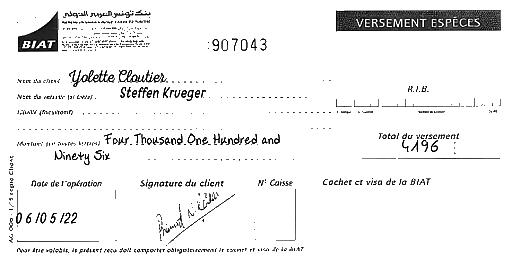 BIAT
VERSEMENT ESPÈCES
907043
Nom du client Yolette Cloutier
Nom du verseur (si tiers) Steffen Krueger
R.I.B.
Libellé (facultatif)
Montant (en toutes lettres) Four Thousand One Hundred and
Ninety Six
Total du versement
4196
Date de l'opération
Signature du client
N° Caisse
Cachet et visa de la BIAT
06/05/22
Pour être valable, le présent reçu doit comporter obligatoirement le cachet et visa de la BIAT